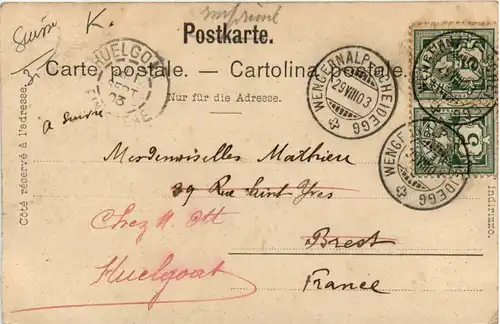 imprimé
Suisse K.
Postkarte.
Carte postale. — Cartolina postale.
Nur für die Adresse.
Côté réservé à l'adresse.
à suivre
HUELGOAT
SEPT
03
FINISTERE
WENGERNALP-SCHEIDEGG
29 VIII 03
WENGERNALP-SCHEIDEGG
5
5
Indirizzo.
Mesdemoiselles Mathieu
39 Rue Saint Yves
Chez M
Brest
Huelgoat
France